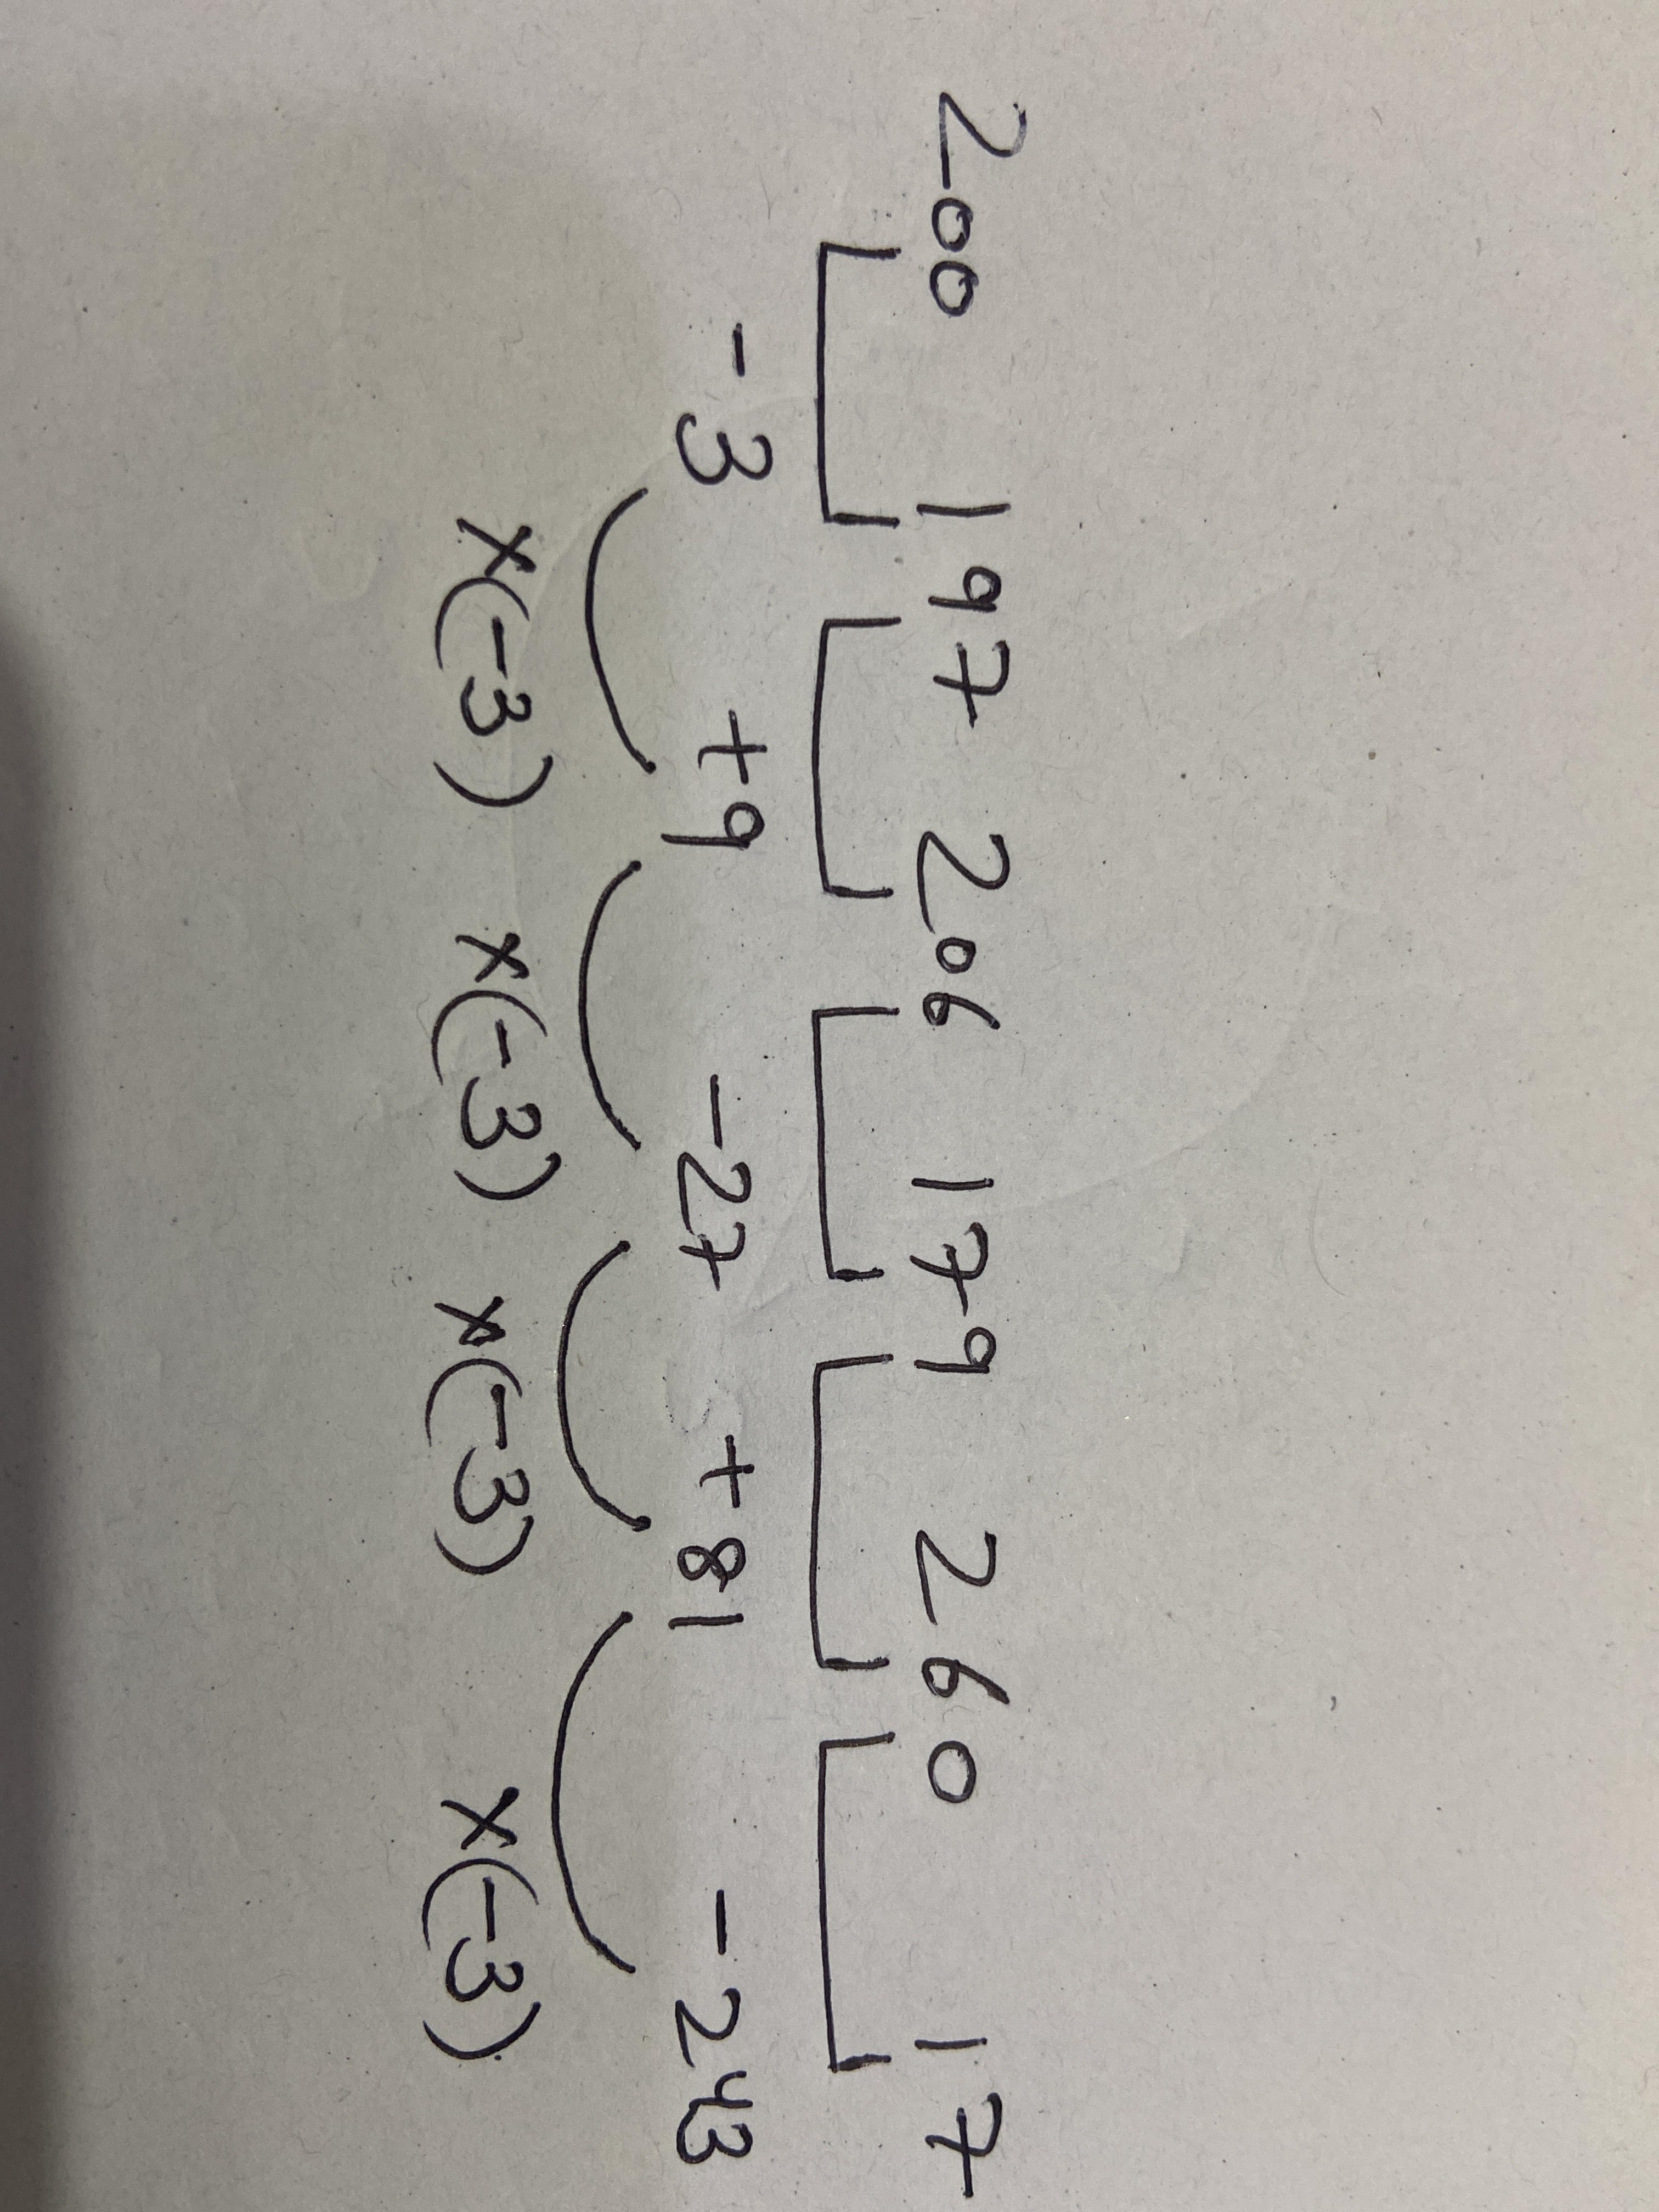 200 197 206 179 260 17
-3 +9 -27 +81 -243
x(-3) x(-3) x(-3) x(-3)